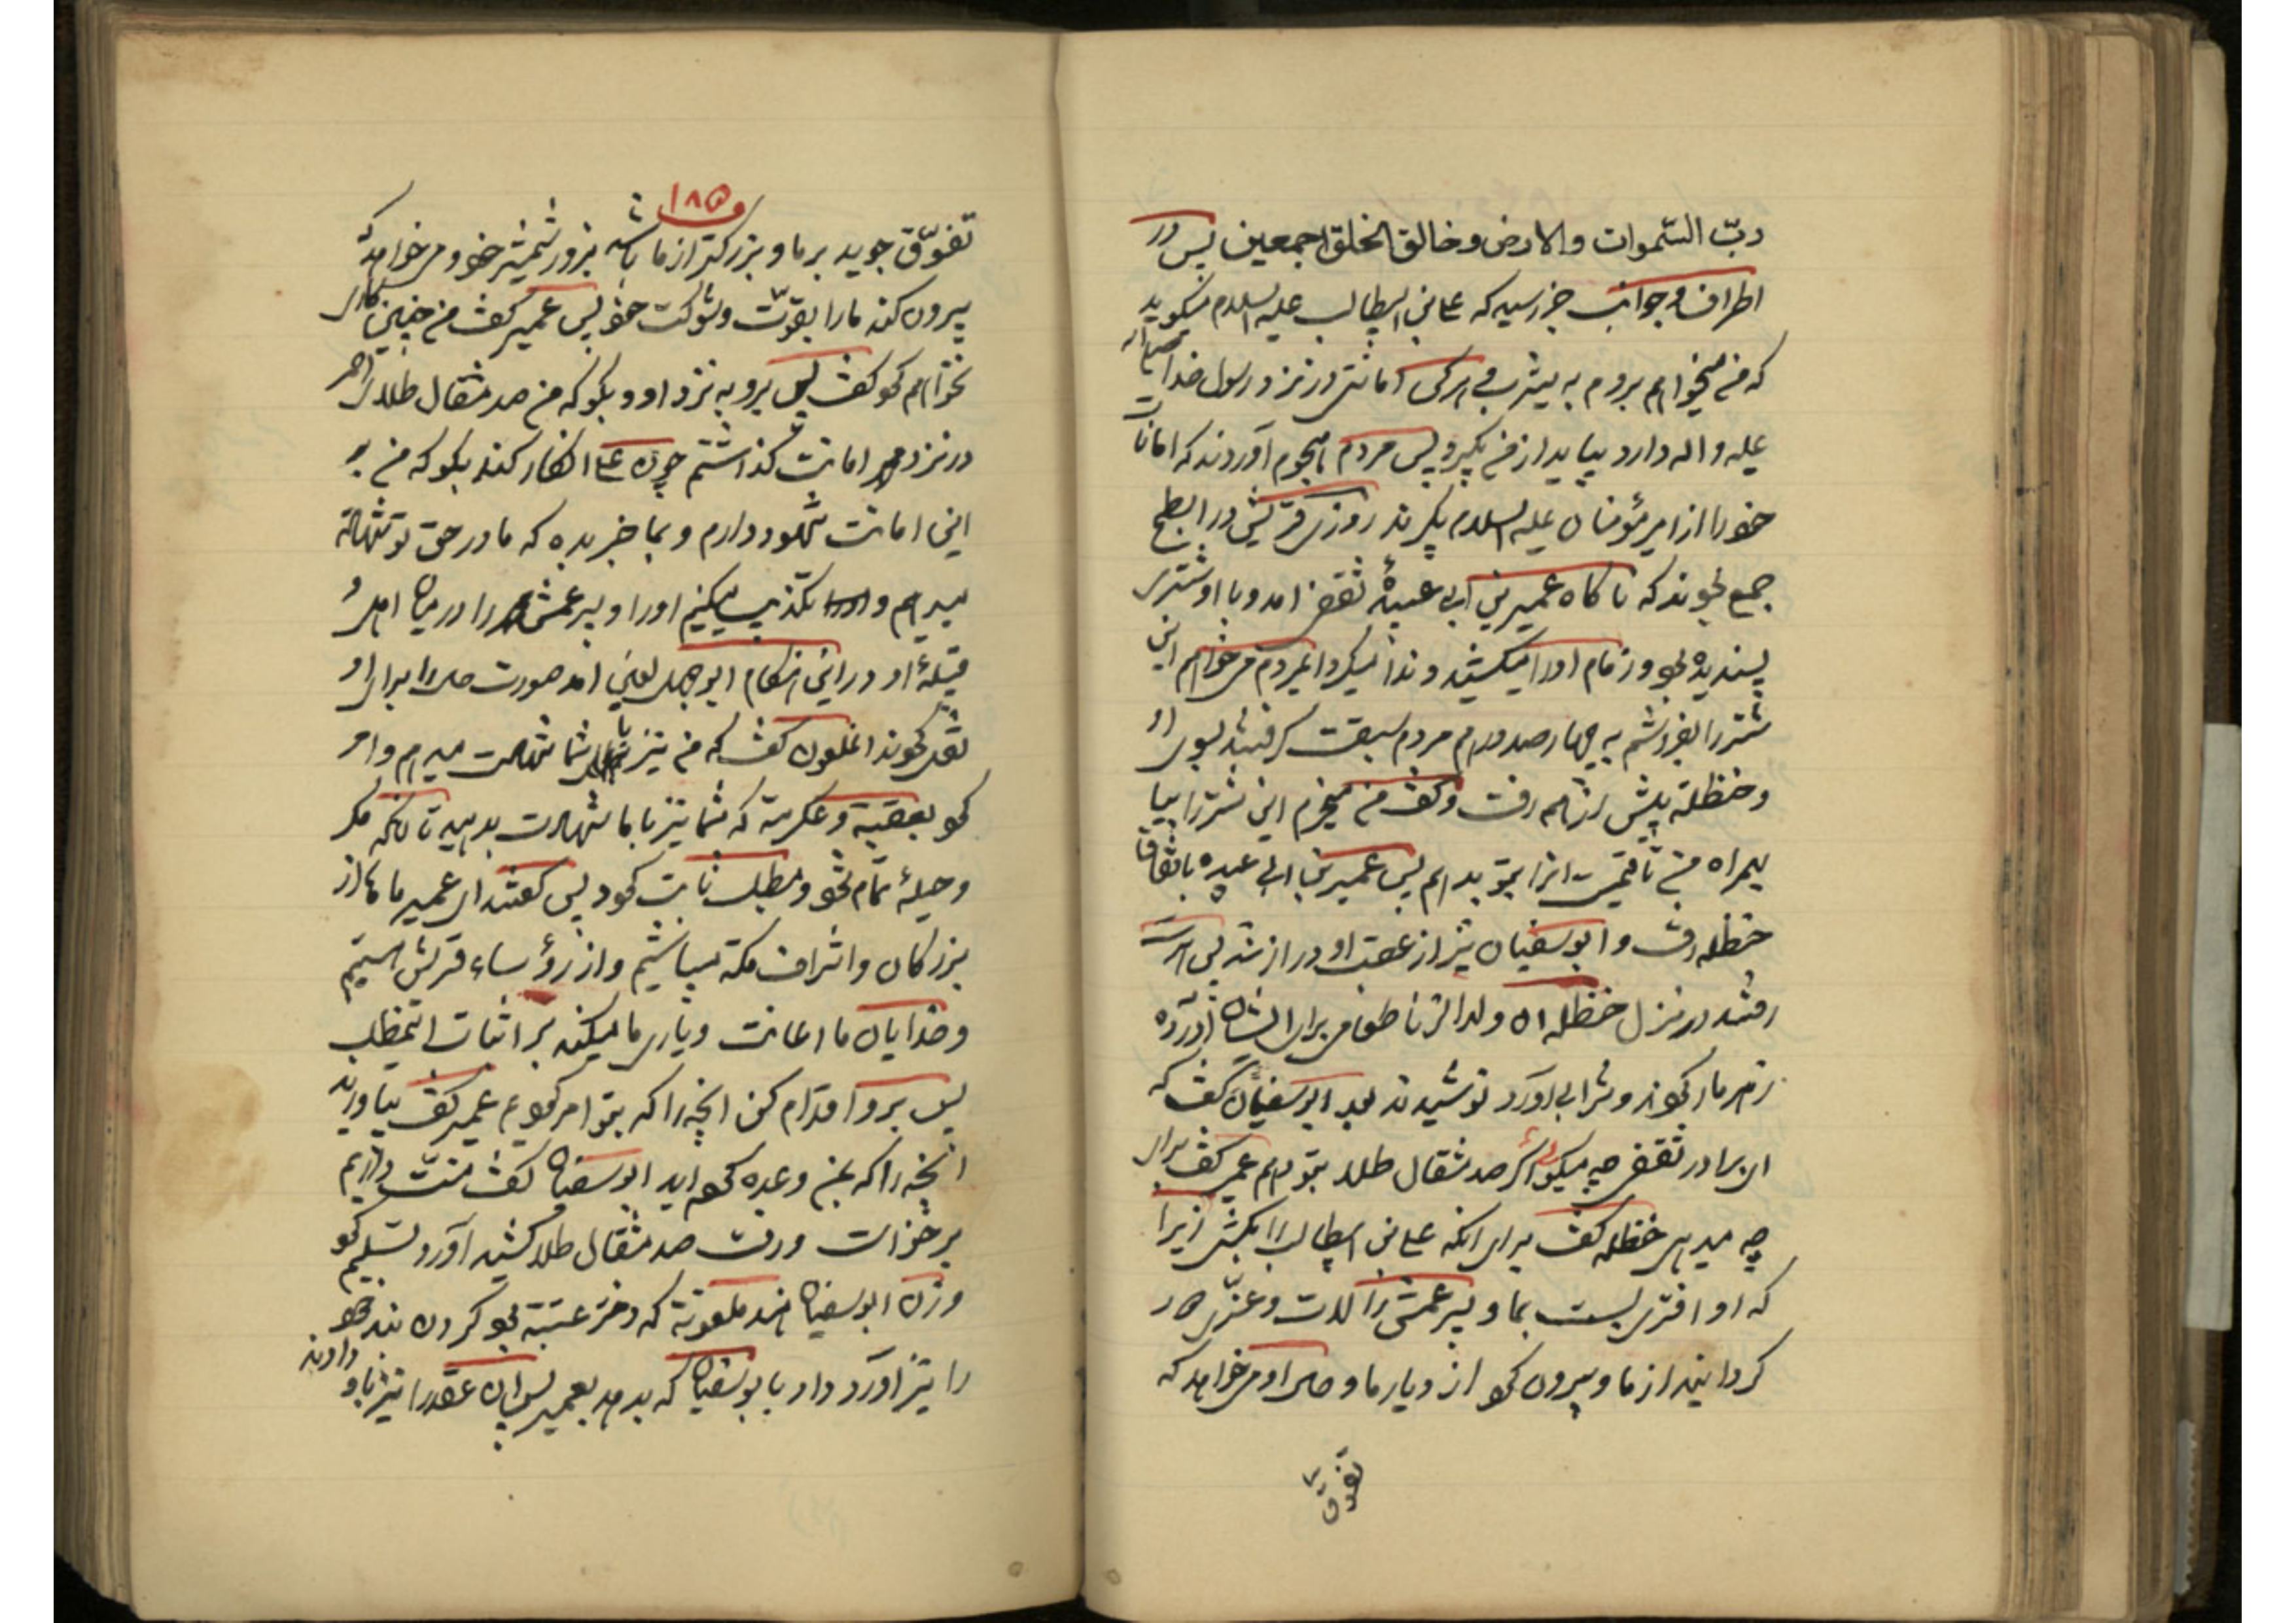 ربّ السّموات والارض و خالق الخلق اجمعین پس در
اطراف و جوانب خبر رسید که علی بن ابیطالب علیه السلام میگوید
که من میخواهم بروم به یثرب هرکس امانتی در نزد رسول خدا صلی الله
علیه و اله دارد بیاید از من بگیرد پس مردم هجوم آوردند که امانات
خود را از امیر مؤمنان علیه السلام بگیرند روزی قریش در ابطح
جمع بودند که ناگاه عمیر بن ابی عبیدهٔ ثقفی امد و با او شتری
پسندیده بود و زمام اورا میکشید و ندا میکرد ایمردم میخواهم این
شتر را بفروشم به چهار صد درهم مردم سبقت گرفتند بسوی او
و حنظلة پیش از همه رفت و گفت من میخرم این شتر را بیا
بهمراه من تا قیمت انرا بتو بدهم پس عمیر بن ابی عبیده باتفاق
حنظله رفت و ابوسفیان نیز از عقب او روان شد پس
رفتند در منزل حنظله ان ولد الزنا طعامی برای ایشان آورده
زهرمار کردند و شرابی آورد نوشیدند بعد ابوسفیان گفت که
ای برادر ثقفی چه میگوئی اگر صد مثقال طلا بتو دهم عمیر گفت برای
چه میدهی حنظله گفت برای انکه علی بن ابیطالب را بکشی زیرا
که او افتری بست بما و پسر عمش را لات و عزّی
گردانید از ما و بیرون کرد از دیار ما و حال او میخواهد که
تفوّق
۱۸۵
تفوّق جوید بر ما و بزرگتر از ما باشد بزور شمشیر خود و میخواهد که
بیرون کند ما را بقوّت و شوکت خود پس عمیر گفت من چنین کاری
نخواهم کرد گفت پس برو به نزد او و بگو که من صد مثقال طلای احمر
در نزد محمد امانت گذاشتم چون علی انکار کند بگو که من بر
این امانت شهود دارم و بما خبر بده که ما در حق تو شهادة
میدهیم و تکذیب میکنیم اورا و پسر عمش را در میان اهل و
قبیلهٔ او در این هنگام ابوجهل لعین امد صورت حال را برای او
نقل کردند انملعون گفت که من نیز برای شما شهادت میدهم و امر
کرد بعقبة و عکرمة که شما نیز با ما شهادت بدهید تا انکه مکر
و حیلهٔ تمام شود و مطلب ثابت گردد پس گفتند ای عمیر ما ها از
بزرگان و اشراف مکّه میباشیم و از رؤساء قریش هستیم
و خدایان ما اعانت و یاری ما میکنند بر اثبات اینمطلب
پس برو اقدام کن انچه را که بتو امر کردیم عمیر گفت بیاورید
انچه را که بمن وعده کرده اید ابوسفیان گفت منّت داریم
برخواست و رفت صد مثقال طلا کشید آورد تسلیم کرد
و زن ابوسفیان هند ملعونة که دختر عتبة بود گردن بند خود
را نیز آورد داد با بوسفیان که بدهد بعمیر پس ان عقد را نیز باو
دادند